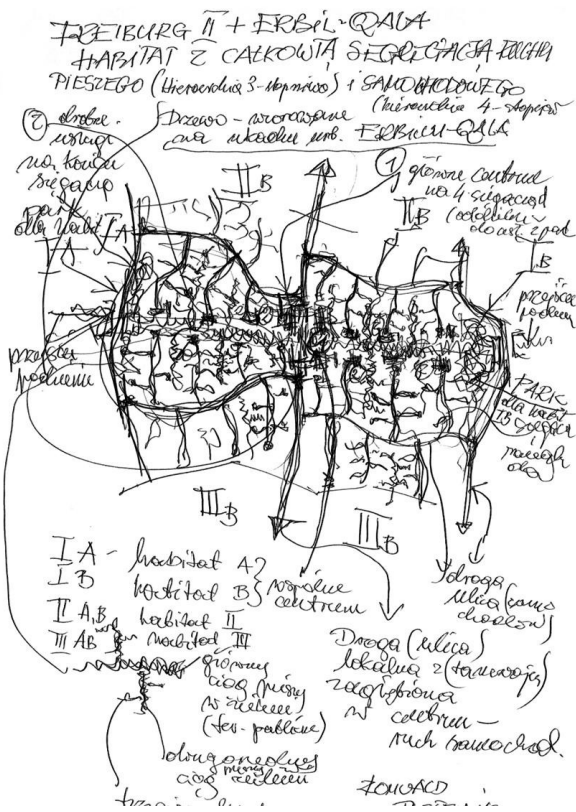 FREIBURG II + ERBIL-QALA
HABITAT Z CAŁKOWITĄ SEGREGACJĄ RUCHU
PIESZEGO (hierarchia 3-stopniowa) i SAMOCHODOWEGO
(hierarchia 4-stopniowa
Drzewo - wzorowane
na układzie urb. ERBILU-QALA
2 drobne
usługi
na końcu
sięgacza
park
dla habit. IA
IIB
1 główne centrum
na 4 sięgaczach
IIB
IA
IB
przejście
podziemne
przejście
PARK
dla habit
IB
IIIB
IIIB
IA - habitat A
IB habitat B
wspólne
centrum
II A,B habitat II
III AB habitat III
główny
ciąg pieszy
w zieleni
(ter. publiczne)
drugorzędny
ciąg pieszy
droga
ulica (samo
chodów)
Droga (ulica)
lokalna z (tramwajem)
zagłębiona
w centrum -
ruch samochod.
ROMUALD